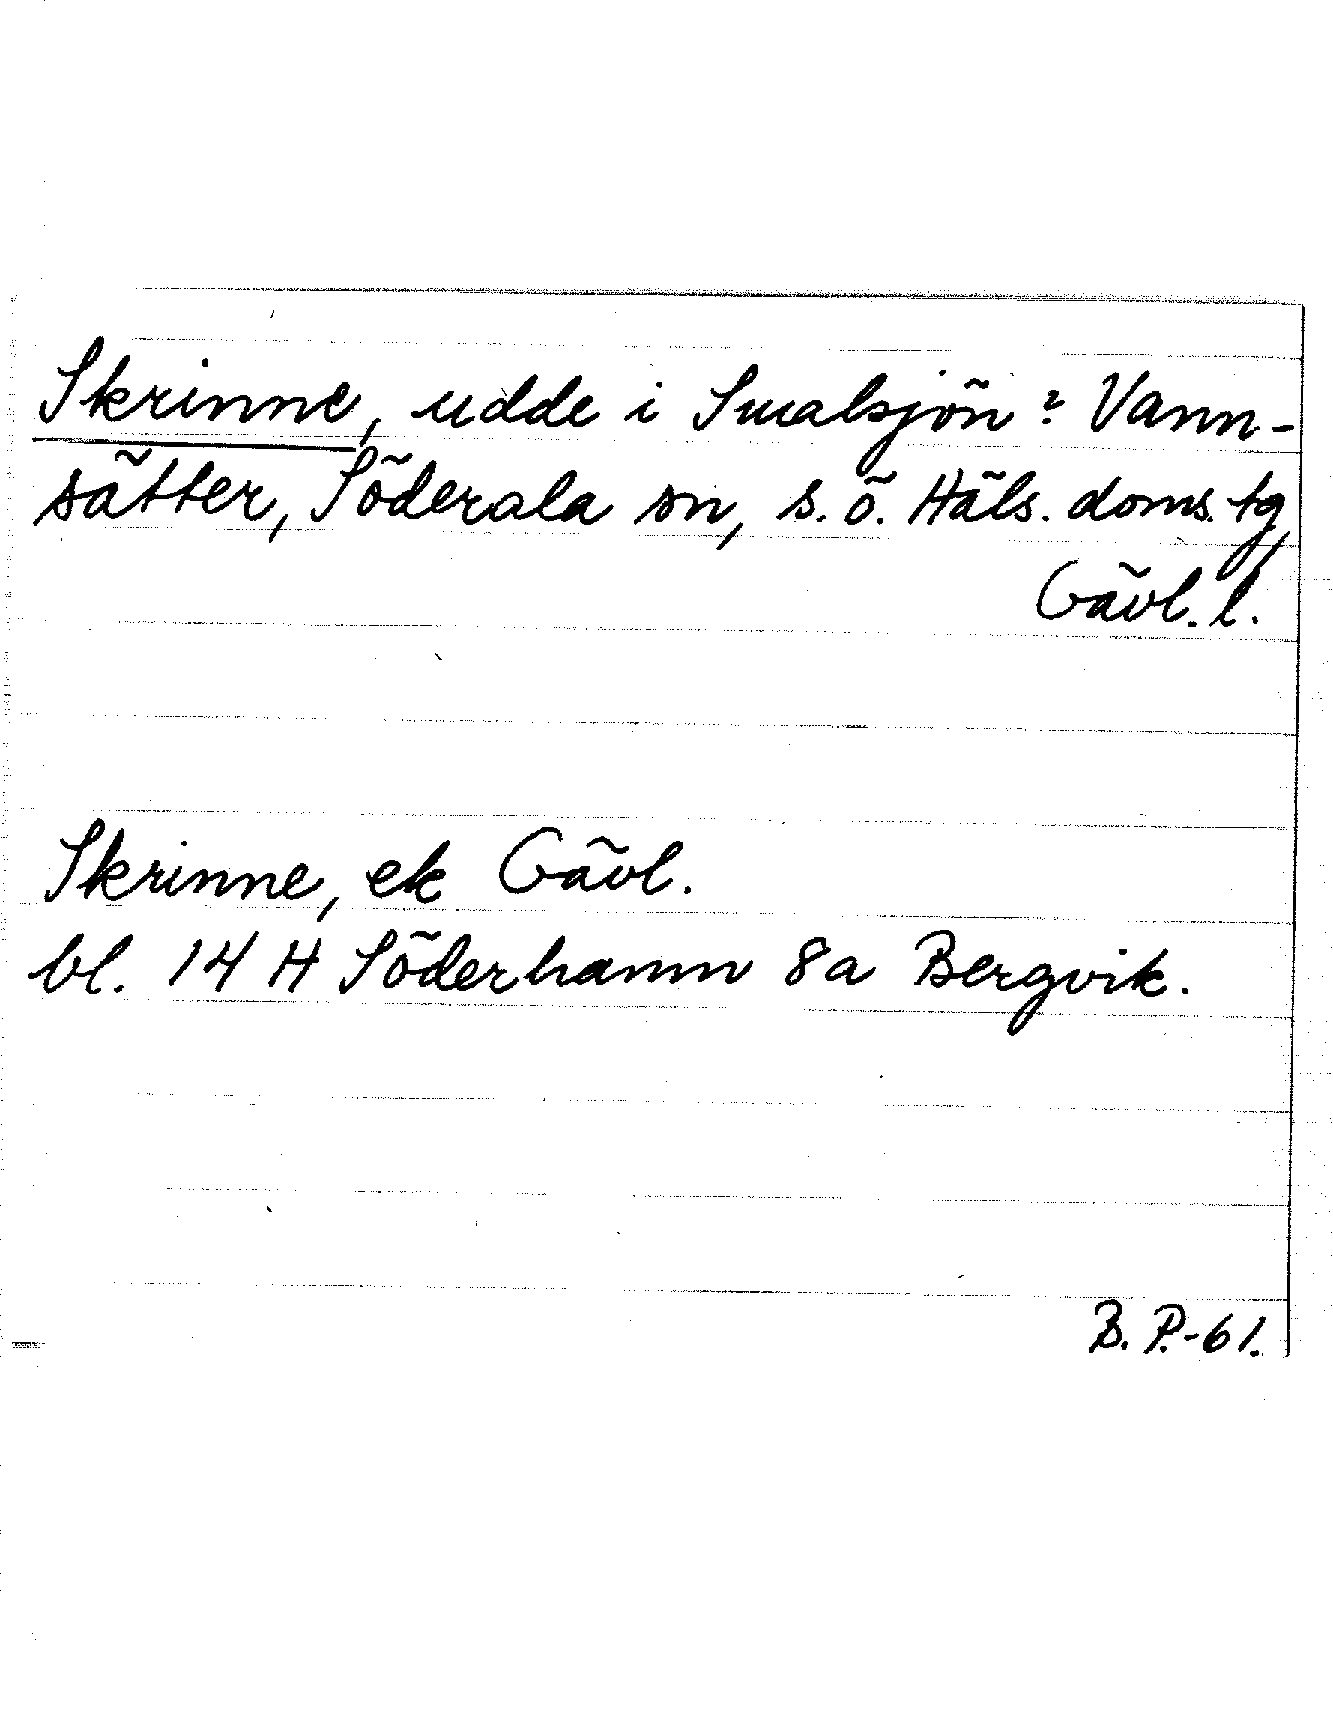 Skrinne, udde i Smalsjön? Vann-
sätter, Söderala sn, s. ö. Häls. doms. tg,
Gävl. l.
Skrinne, ek Gävl.
bl. 14 H Söderhamn 8a Bergvik.
B. P.-61.